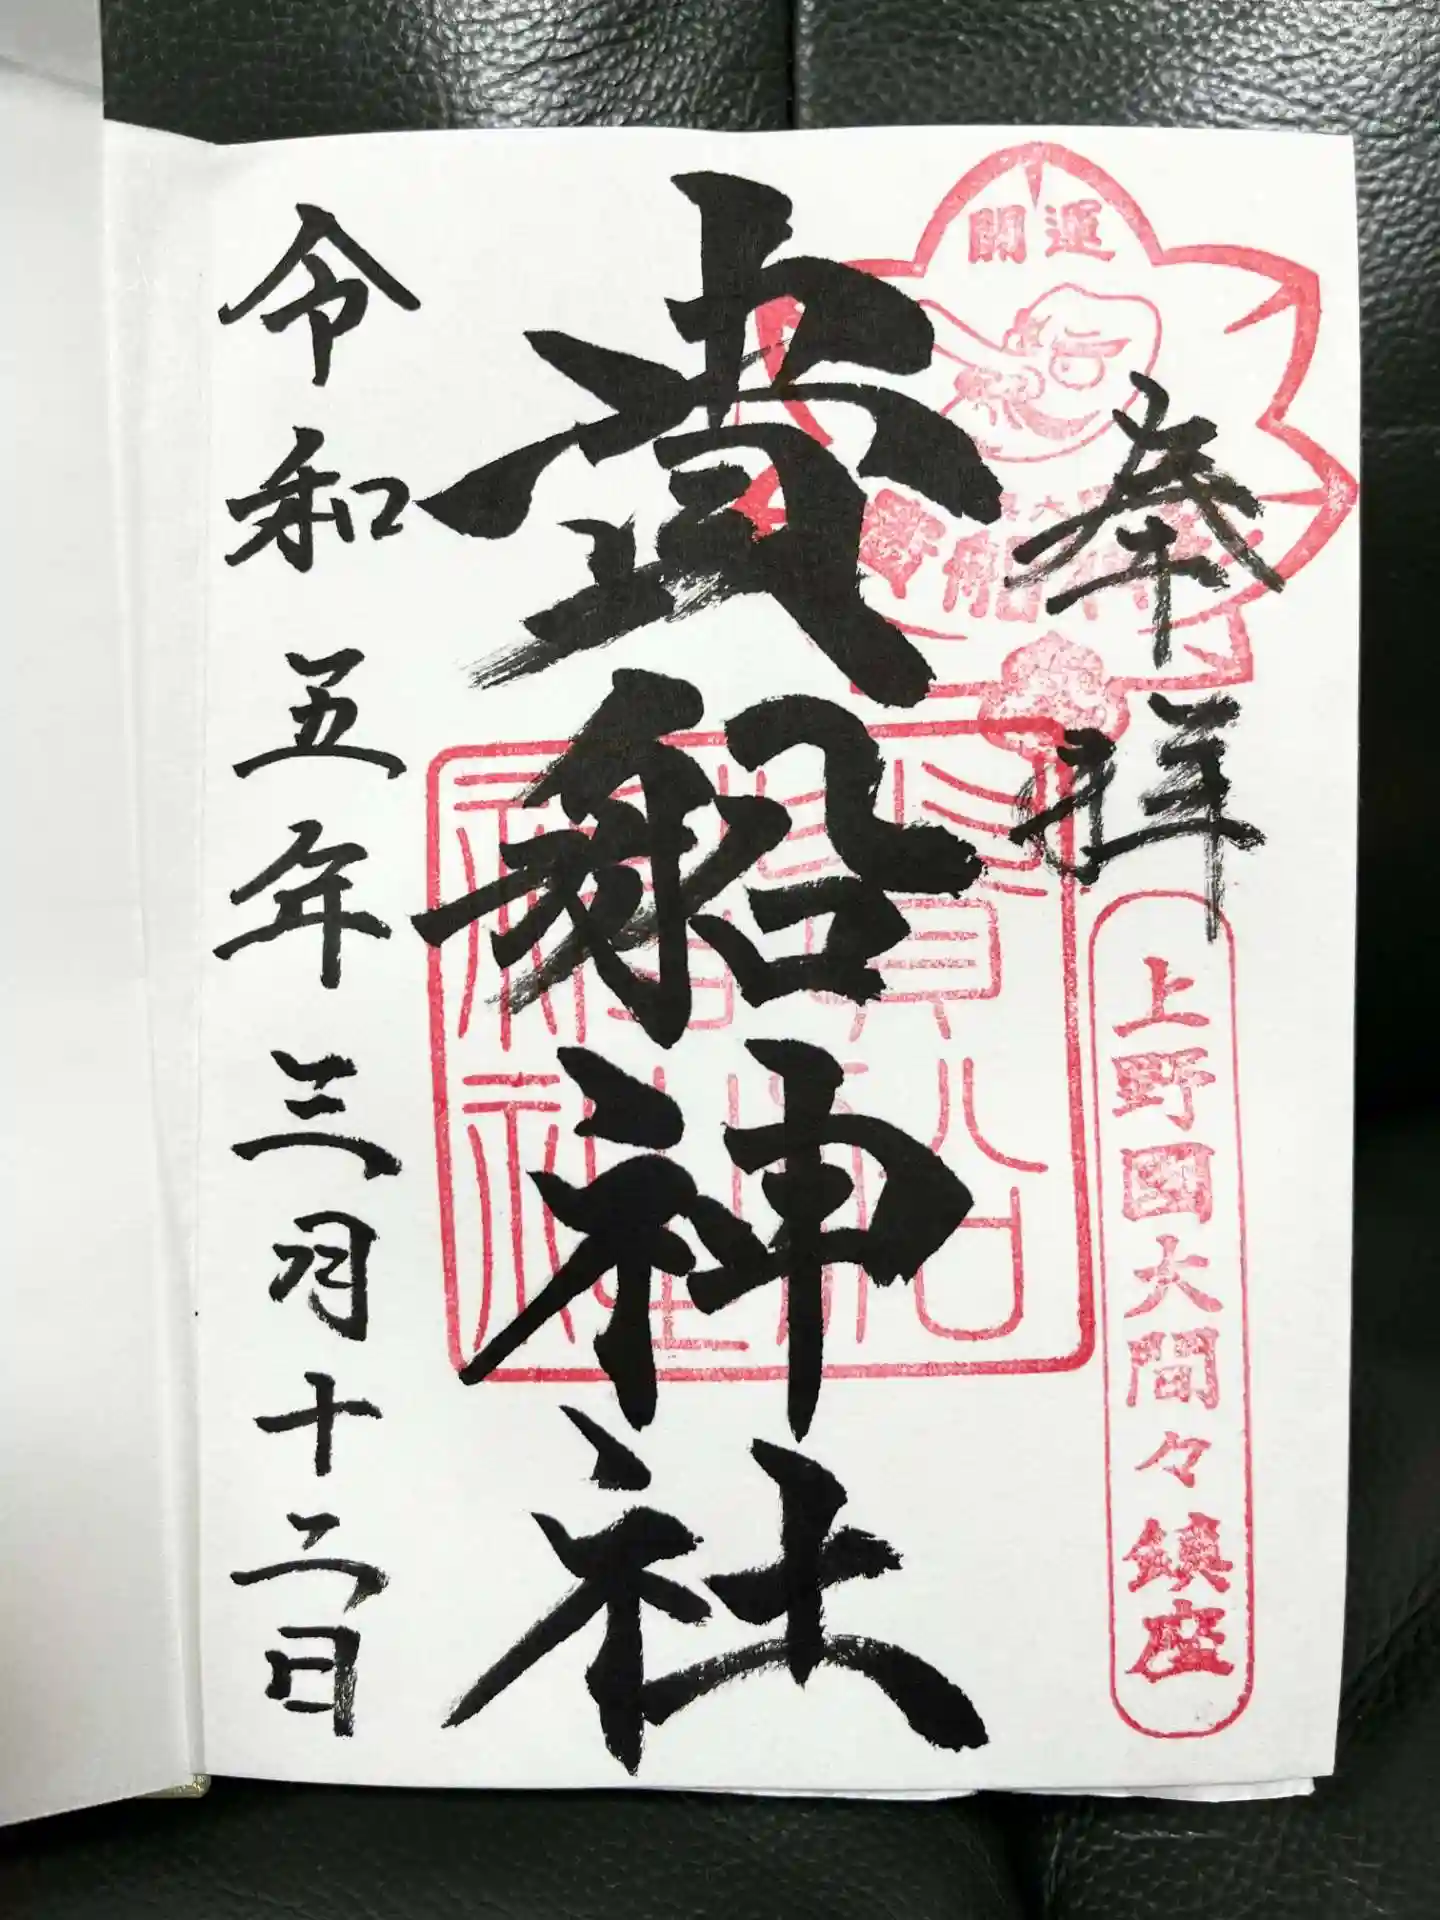 開運
奉拝
上野国大間々鎮座
貴船神社
令和五年三月十二日